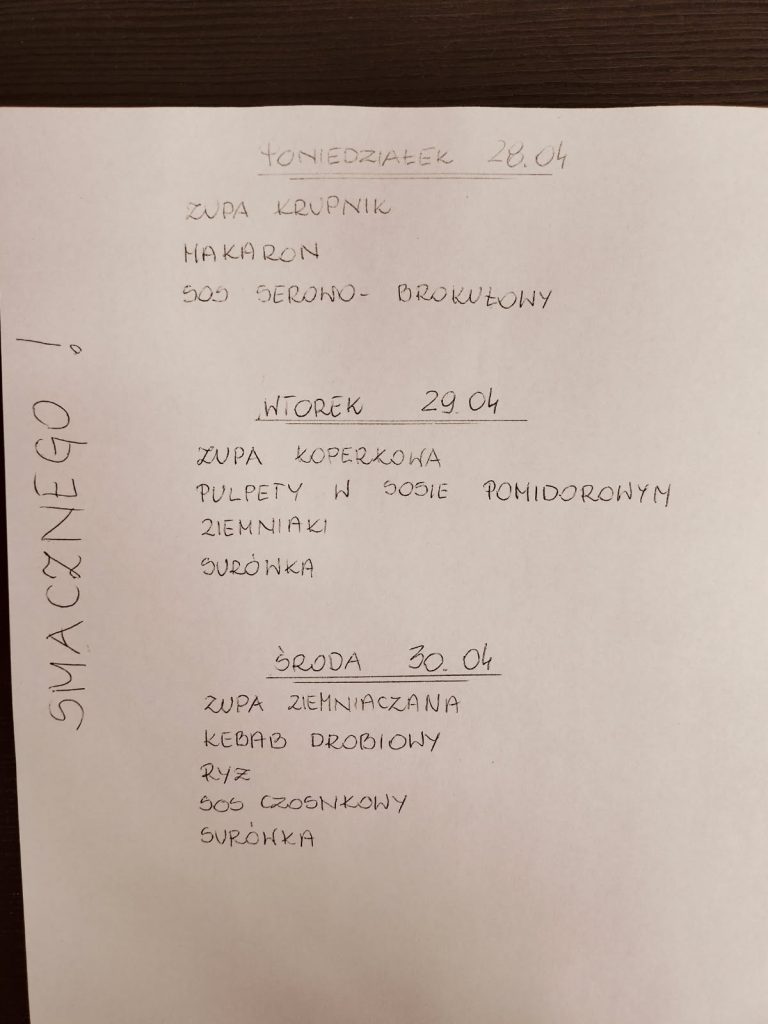 PONIEDZIAŁEK 28.04
ZUPA KRUPNIK
MAKARON
SOS SEROWO- BROKUŁOWY
WTOREK 29.04
ZUPA KOPERKOWA
PULPETY W SOSIE POMIDOROWYM
ZIEMNIAKI
SURÓWKA
ŚRODA 30.04
ZUPA ZIEMNIACZANA
KEBAB DROBIOWY
RYZ
SOS CZOSNKOWY
SURÓWKA
SMACZNEGO!